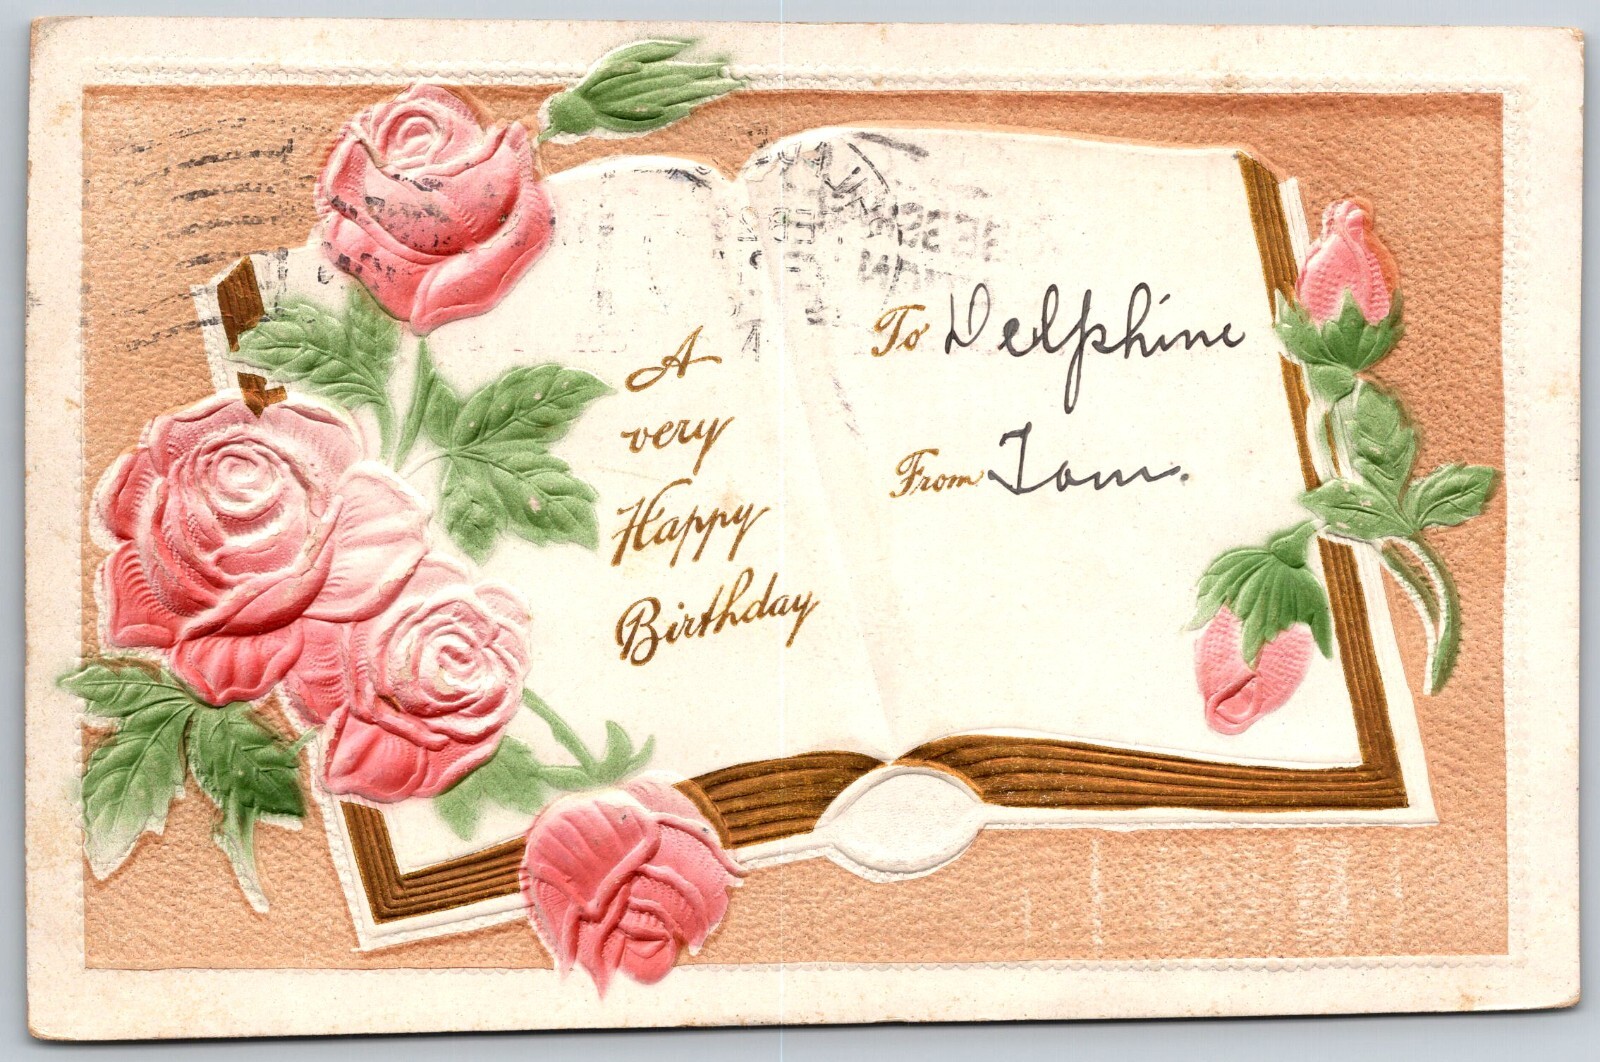 A
very
Happy
Birthday
To Delphine
From Tom.